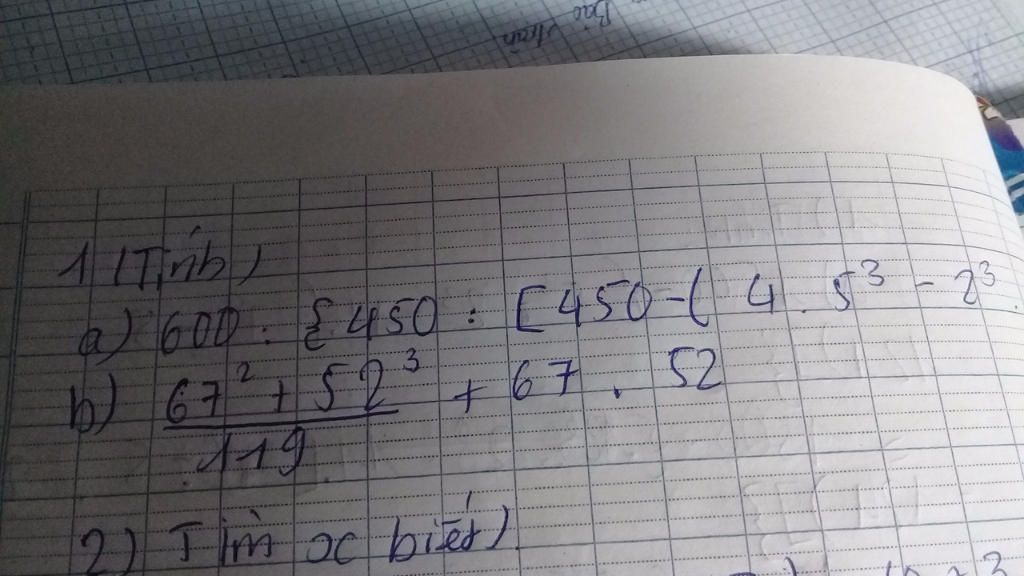 Bác
1) (Tính)
a) 600 : { 450 : [ 450 - ( 4 . 5³ - 2³ .
b) 67² + 52³ + 67 . 52
119
2) Tìm x biết)